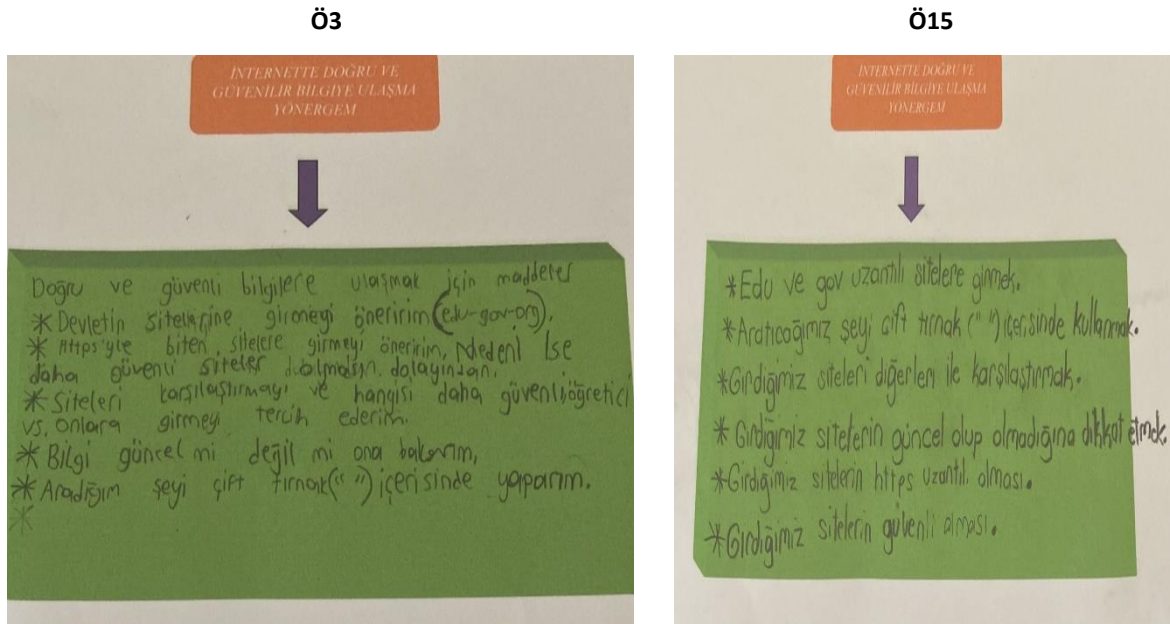 Ö3
İNTERNETTE DOĞRU VE
GÜVENİLİR BİLGİYE ULAŞMA
YÖNERGEM
Doğru ve güvenli bilgilere ulaşmak için maddeler
* Devletin sitelerine girmeyi öneririm (edu-gov-org).
* Https'yle biten sitelere girmeyi öneririm, Nedeni ise
daha güvenli siteler olmasın dolayından,
* Siteleri karşılaştırmayı ve hangisi daha güvenli,öğretici
vs. onlara girmeyi tercih ederim.
* Bilgi güncel mi değil mi ona bakarım,
* Aradığım şeyi çift tırnak(“ ”) içerisinde yaparım.
*
Ö15
İNTERNETTE DOĞRU VE
GÜVENİLİR BİLGİYE ULAŞMA
YÖNERGEM
* Edu ve gov uzantılı sitelere girmek.
* Aratıcağımız şeyi çift tırnak (“ ”) içerisinde kullanmak.
* Girdiğimiz siteleri diğerleri ile karşılaştırmak.
* Girdiğimiz sitelerin güncel olup olmadığına dikkat etmek.
* Girdiğimiz sitelerin https uzantılı olması.
* Girdiğimiz sitelerin güvenli olması.